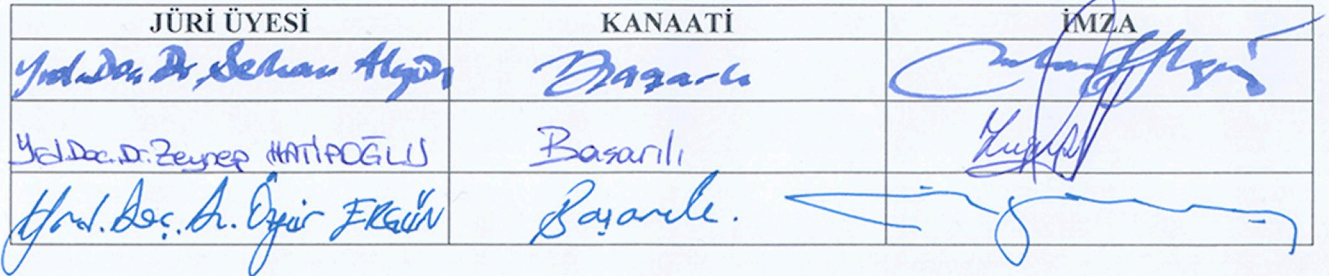 JÜRİ ÜYESİ KANAATİ İMZA
Yrd. Doç. Dr. Başarılı
Yrd.Doc.Dr.Zeynep HATİPOĞLU Basarılı
Yrd. Doç. Dr. Özgür ERGÜN Başarılı.